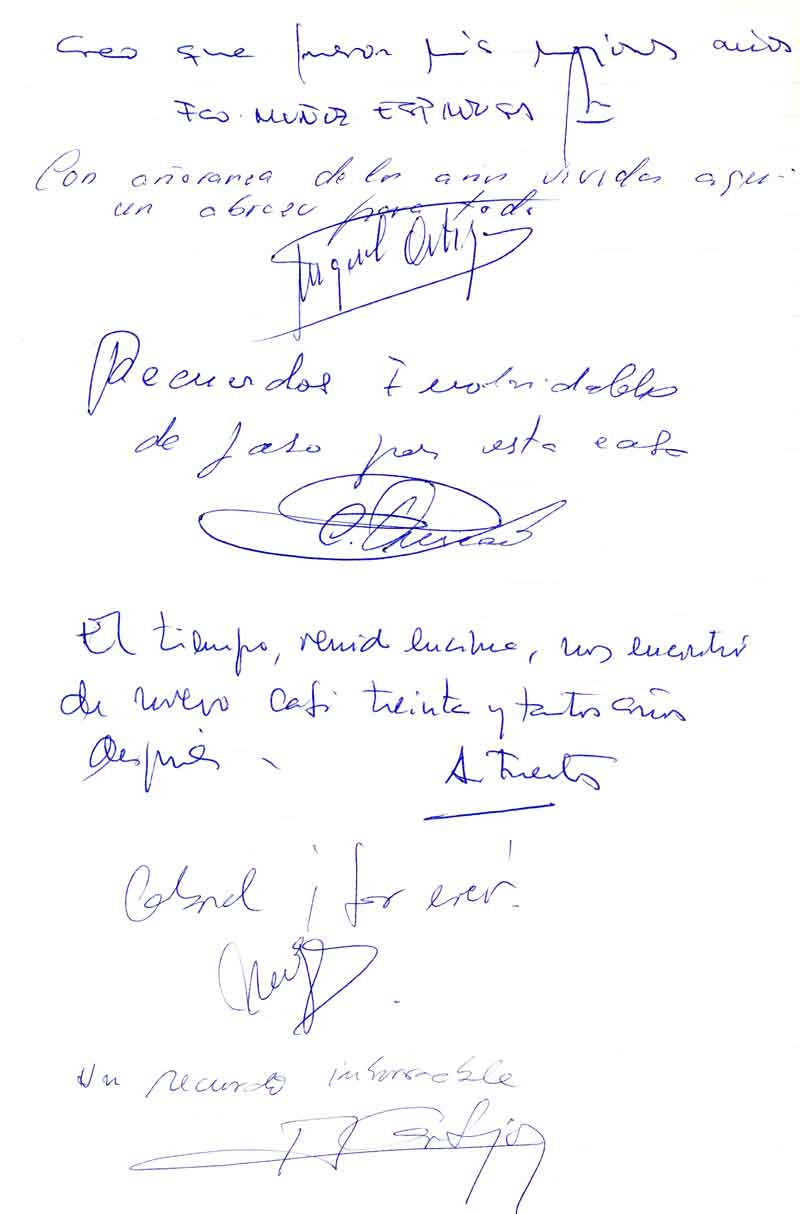 Creo que fueron mis mejores años
Fco. MUÑOZ ESPINOSA
Con añoranza de los años vividos aquí.
un abrazo para todos
Miguel Ortiz
Recuerdos Inolvidables
de paso por esta casa
El tiempo, venid encima, nos encontró
de nuevo casi treinta y tantos años
después.
A. Fuentes
¡for ever!
Un recuerdo imborrable